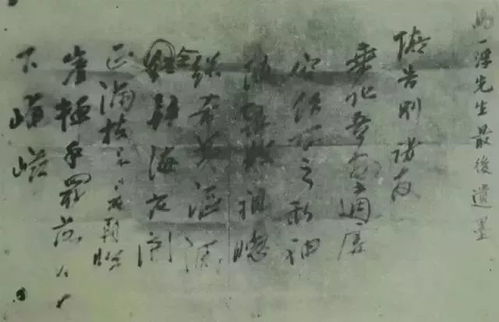 馬一浮先生最後遺墨
擬告別諸友
乘化吾安適虛
空任所之形神
隨聚散視聽
總希夷漚滅
全歸海花開
正滿枝臨
崖揮手罷落日
下崦嵫